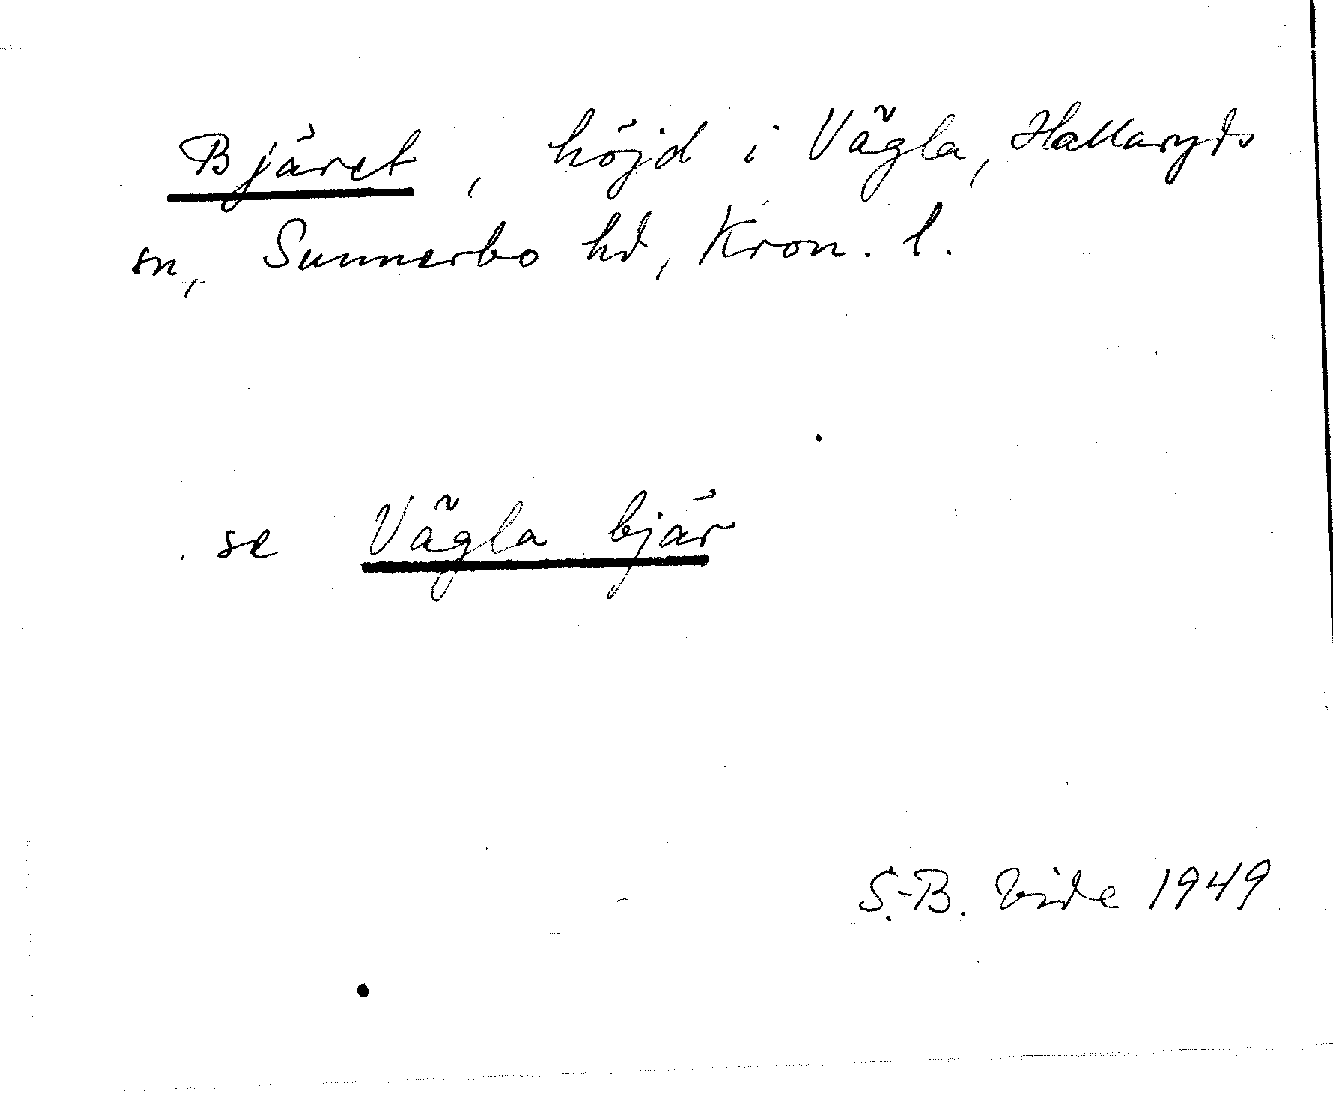 Bjäret, höjd i Vägla, Hallaryds
sn, Sunnerbo hd, Kron. l.
se Vägla bjär
S.-B. Vide 1949